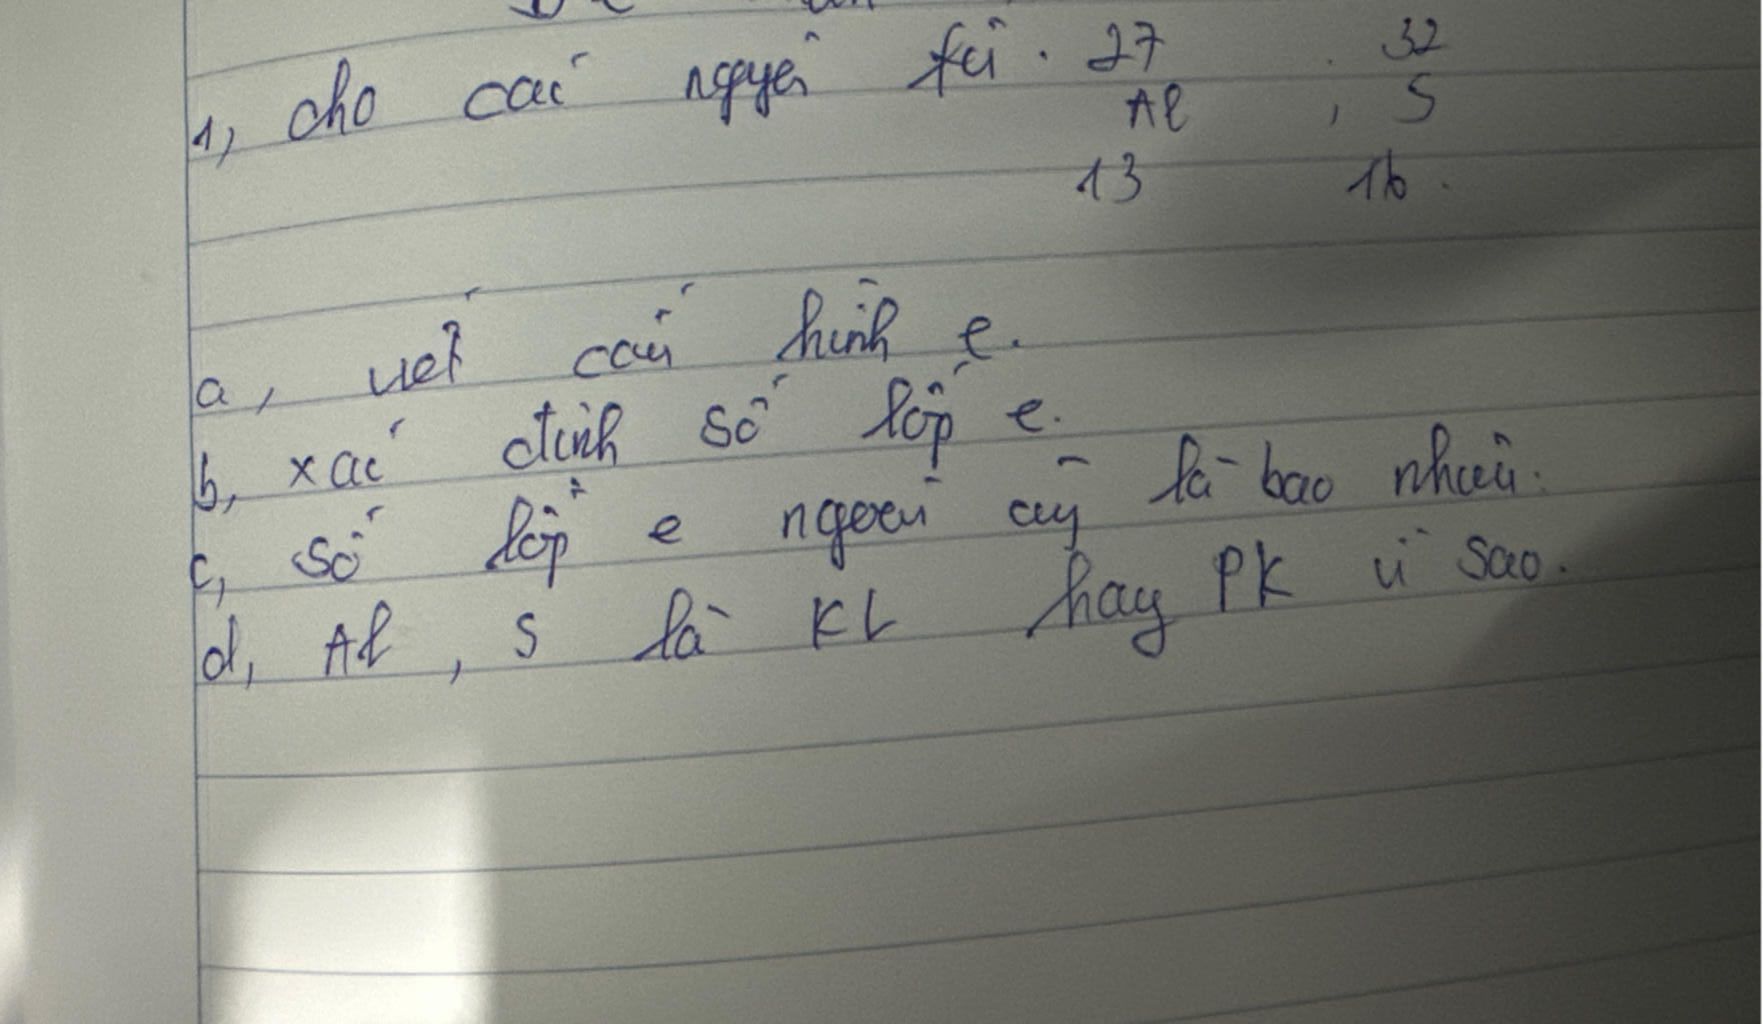 1, cho các nguyên tử. 27 32
Al , S
13 16.
a, viết cấu hình e.
b, xác định số lớp e.
c, số lớp e ngoài cùng là bao nhiêu.
d, Al, S là KL hay PK vì sao.